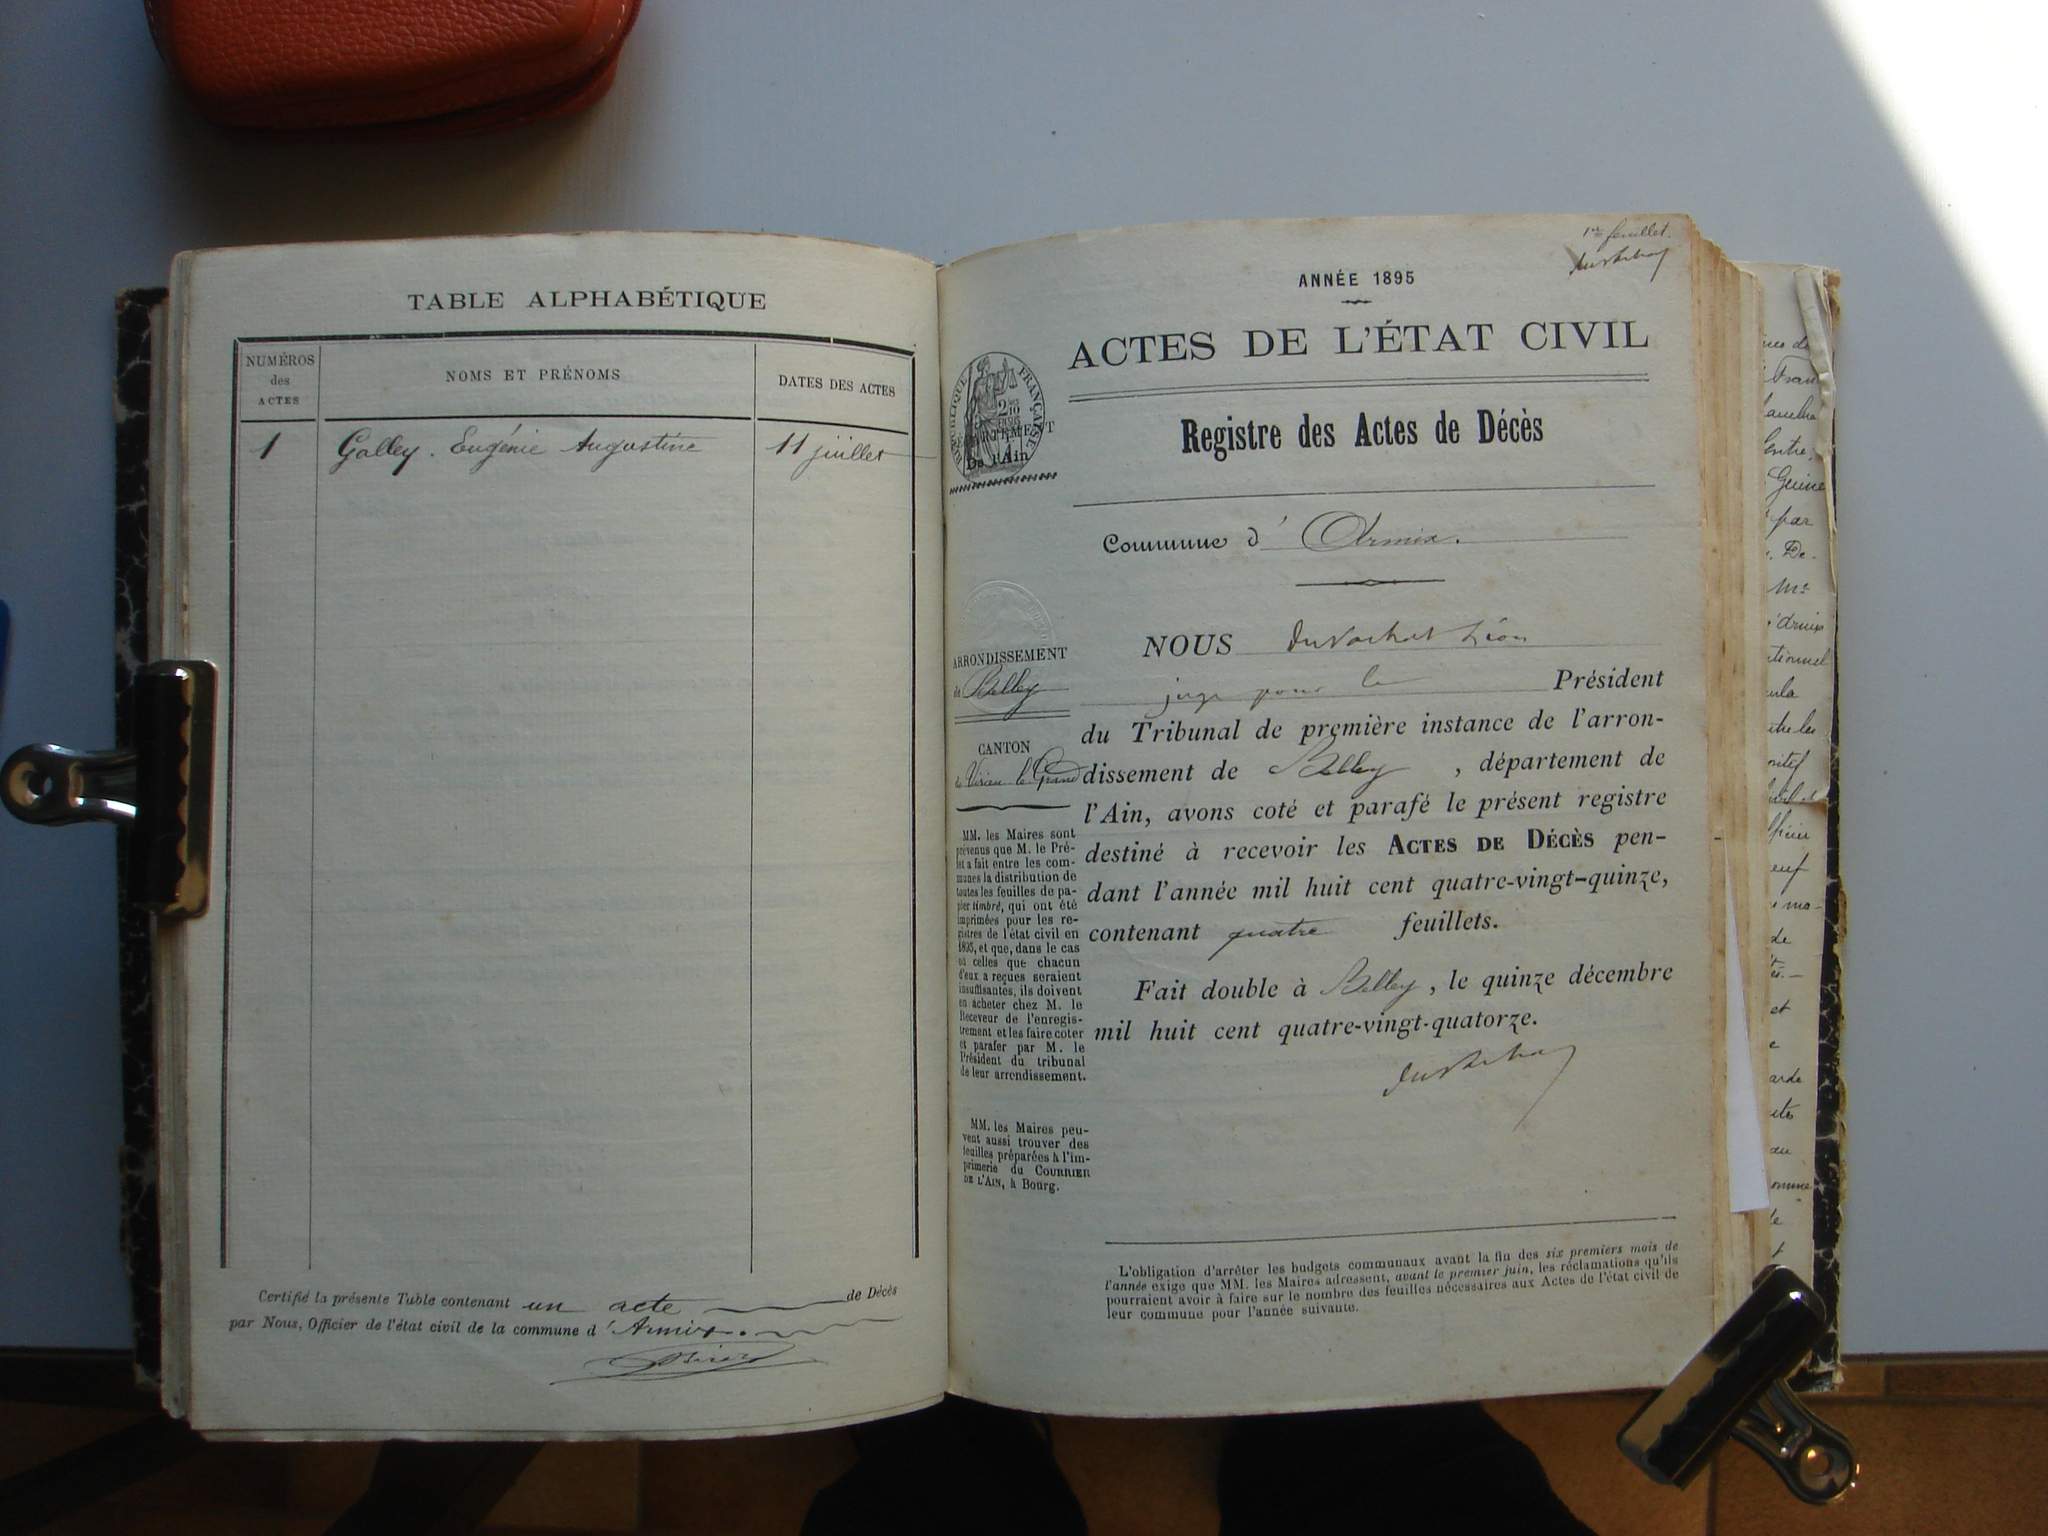 TABLE ALPHABÉTIQUE
NUMÉROS
des
ACTES
NOMS ET PRÉNOMS
DATES DES ACTES
1 Galley. Eugénie Augustine 11 juillet
Certifié la présente Table contenant un acte de Décès
par Nous, Officier de l'état civil de la commune d'Armix.
1er feuillet.
ANNÉE 1895
ACTES DE L'ÉTAT CIVIL
RÉPUBLIQUE FRANÇAISE
De l'Ain
Registre des Actes de Décès
Commune d'Armix.
ARRONDISSEMENT
de Belley
CANTON
de Virieu le Grand
MM. les Maires sont
prévenus que M. le Pré-
fet a fait entre les com-
munes la distribution de
toutes les feuilles de pa-
pier timbré, qui ont été
imprimées pour les re-
gistres de l'état civil en
1895, et que, dans le cas
où celles que chacun
d'eux a reçues seraient
insuffisantes, ils doivent
en acheter chez M. le
Receveur de l'enregis-
trement et les faire coter
et parafer par M. le
Président du tribunal
de leur arrondissement.
MM. les Maires peu-
vent aussi trouver des
feuilles préparées à l'im-
primerie du COURRIER
DE L'AIN, à Bourg.
NOUS Duvachat Léon
juge pour le Président
du Tribunal de première instance de l'arron-
dissement de Belley, département de
l'Ain, avons coté et parafé le présent registre
destiné à recevoir les ACTES DE DÉCÈS pen-
dant l'année mil huit cent quatre-vingt-quinze,
contenant quatre feuillets.
Fait double à Belley, le quinze décembre
mil huit cent quatre-vingt-quatorze.
L'obligation d'arrêter les budgets communaux avant la fin des six premiers mois de
l'année exige que MM. les Maires adressent, avant le premier juin, les réclamations qu'ils
pourraient avoir à faire sur le nombre des feuilles nécessaires aux Actes de l'état civil de
leur commune pour l'année suivante.